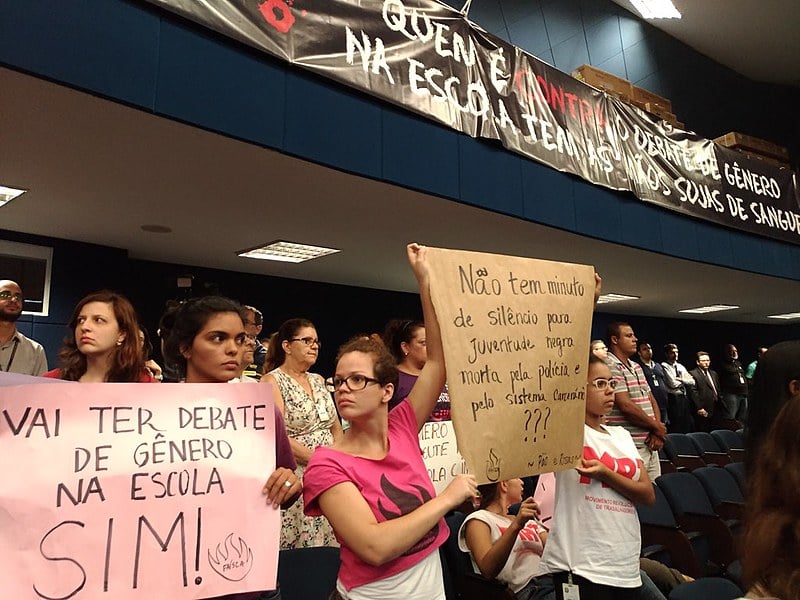 QUEM É CONTRA O DEBATE DE GÊNERO
NA ESCOLA TEM AS MÃOS SUJAS DE SANGUE
Não tem minuto
de silêncio para
juventude negra
morta pela polícia e
pelo sistema carcerário
???
~ Pão e Rosas ~
VAI TER DEBATE
DE GÊNERO
NA ESCOLA
SIM!
FAÍSCA
MOVIMENTO REVOLUCIONÁRIO
DE TRABALHADORES